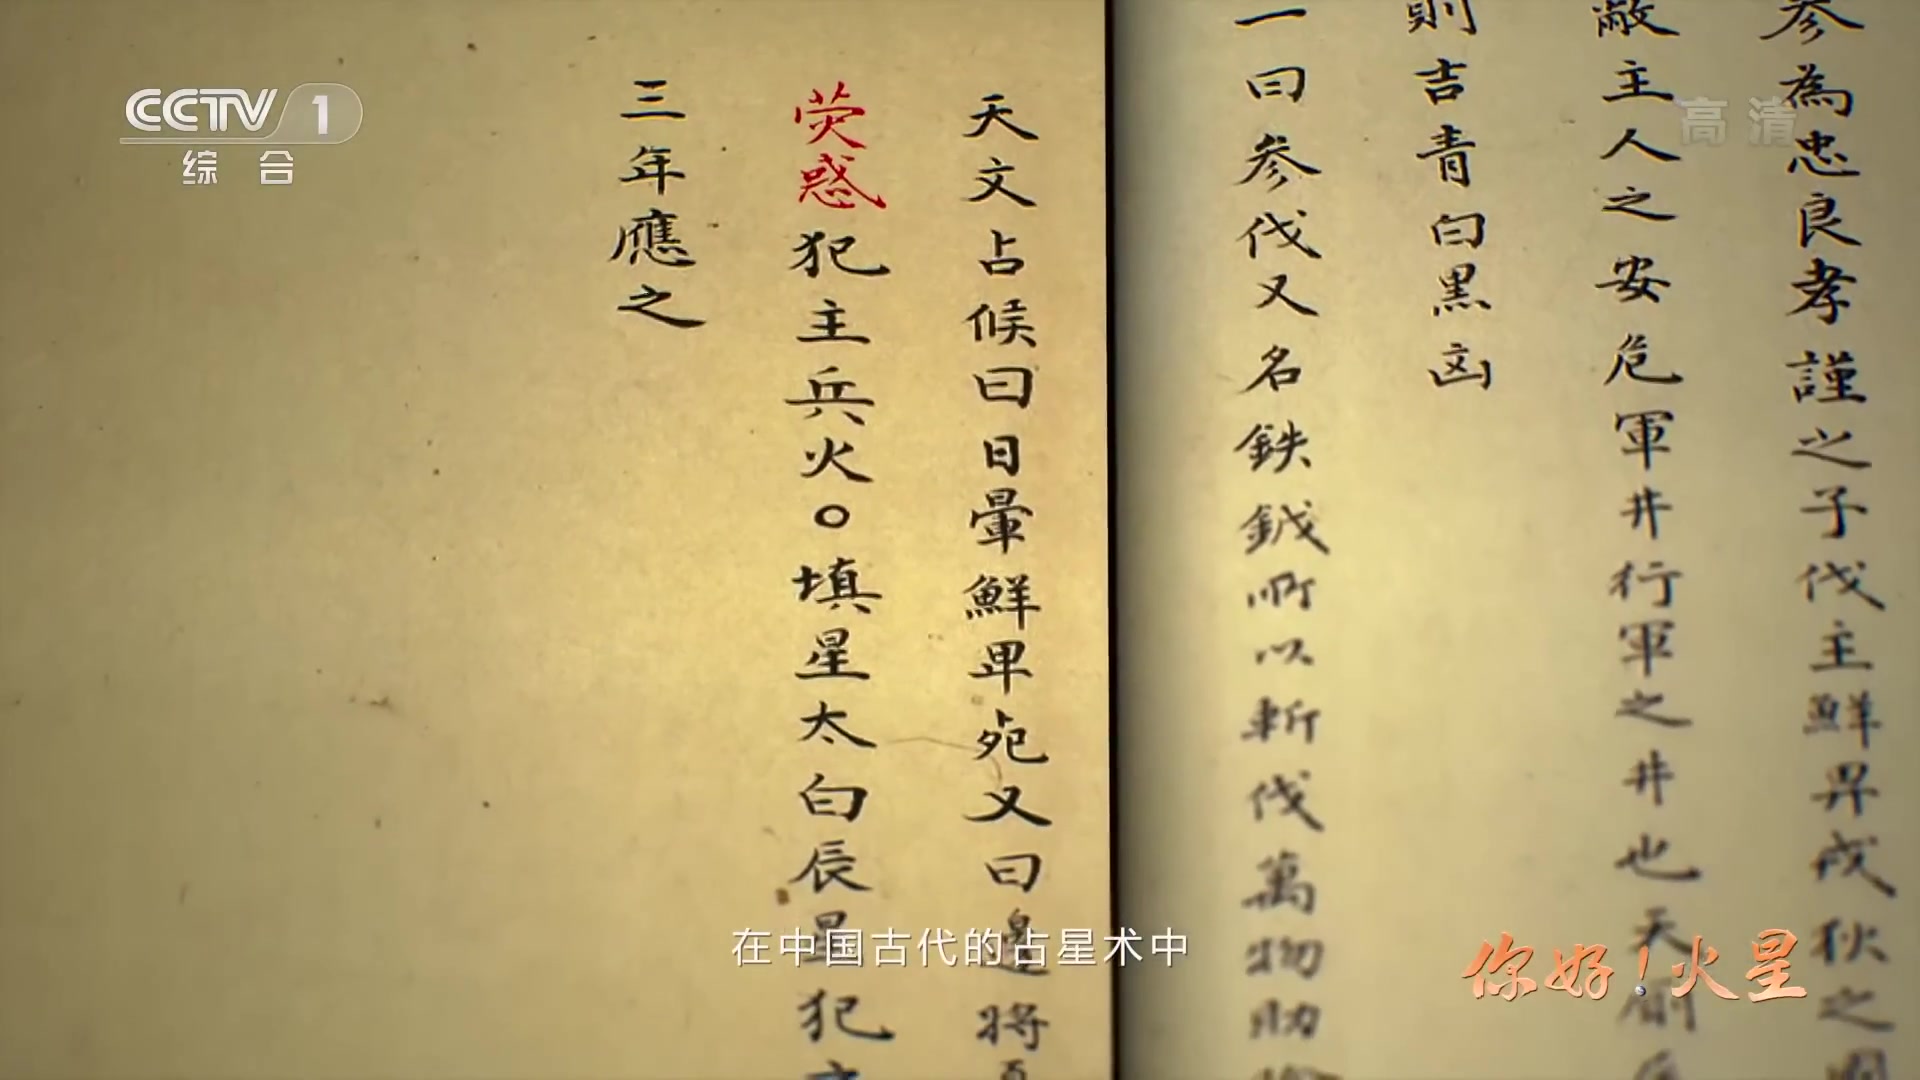 CCTV 1
综合
高清
参為忠良孝謹之子伐主鮮
敝主人之安危軍井行軍之井也天
則吉青白黑凶
一曰参伐又名鈇鉞所以斬伐萬物
天文占候曰日暈鮮卑死又曰邊將
荧惑犯主兵火○填星太白辰星犯
三年應之
在中国古代的占星术中
你好!火星